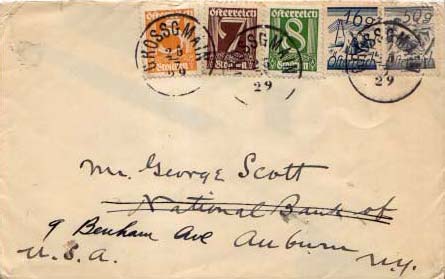 Österreich Österreich Österreich 16g 50g
7 8
Groschen Groschen
GROSSGMAIN
29
29
29
Mr. George Scott
National Bank of
9 Benham Ave Auburn
U.S.A. N.Y.